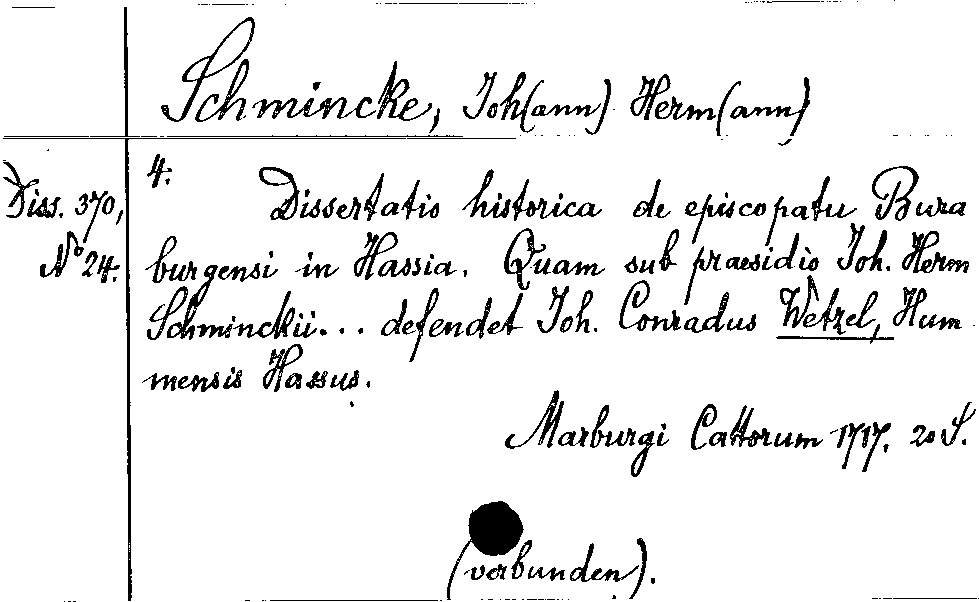 Schmincke, Joh(ann) Herm(ann)
4.
Diss. 370,
No 24.
Dissertatio historica de episcopatu Bura
burgensi in Hassia. Quam sub praesidio Joh. Herm
Schminckii... defendet Joh. Conradus Wetzel, Hum
mensis Hassus.
Marburgi Cattorum 1717. 20 S.
(verbunden).